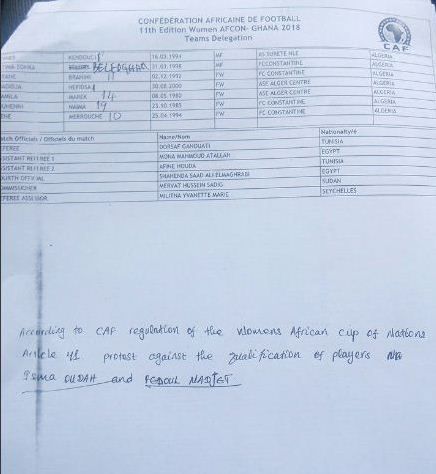 CONFÉDÉRATION AFRICAINE DE FOOTBALL
11th Edition Women AFCON- GHANA 2018
Teams Delegation
CAF
KENDOUCI 16.03.1991 MF AS SURETE NLE ALGERIA
BELFOGHANA 31.03.1998 MF FC CONSTANTINE ALGERIA
BRAHIMI 11 02.12.1992 FW FC CONSTANTINE ALGERIA
30.08.2000 FW ASE ALGER CENTRE ALGERIA
MAREK 14 08.05.1980 FW ASE ALGER CENTRE ALGERIA
19 23.10.1985 FW FC CONSTANTINE ALGERIA
MERROUCHE 10 25.04.1994 FW FC CONSTANTINE ALGERIA
tch Officials / Officiels du match Name/Nom Nationality/é
EFEREE DORSAF GANOUATI TUNISIA
SISTANT REFEREE 1 MONA MAHMOUD ATALLAH EGYPT
SISTANT REFEREE 2 AFINE HOUDA TUNISIA
OURTH OFFICIAL SHAHENDA SAAD ALI ELMAGHRABI EGYPT
OMMISSIONER MERVAT HUSSEIN SADIG SUDAN
EFEREE ASSESSOR YVANETTE MARIE SEYCHELLES
According to CAF regulation of the Womens African cup of Nations
Article 41 protest against the qualification of players
OUDAH and